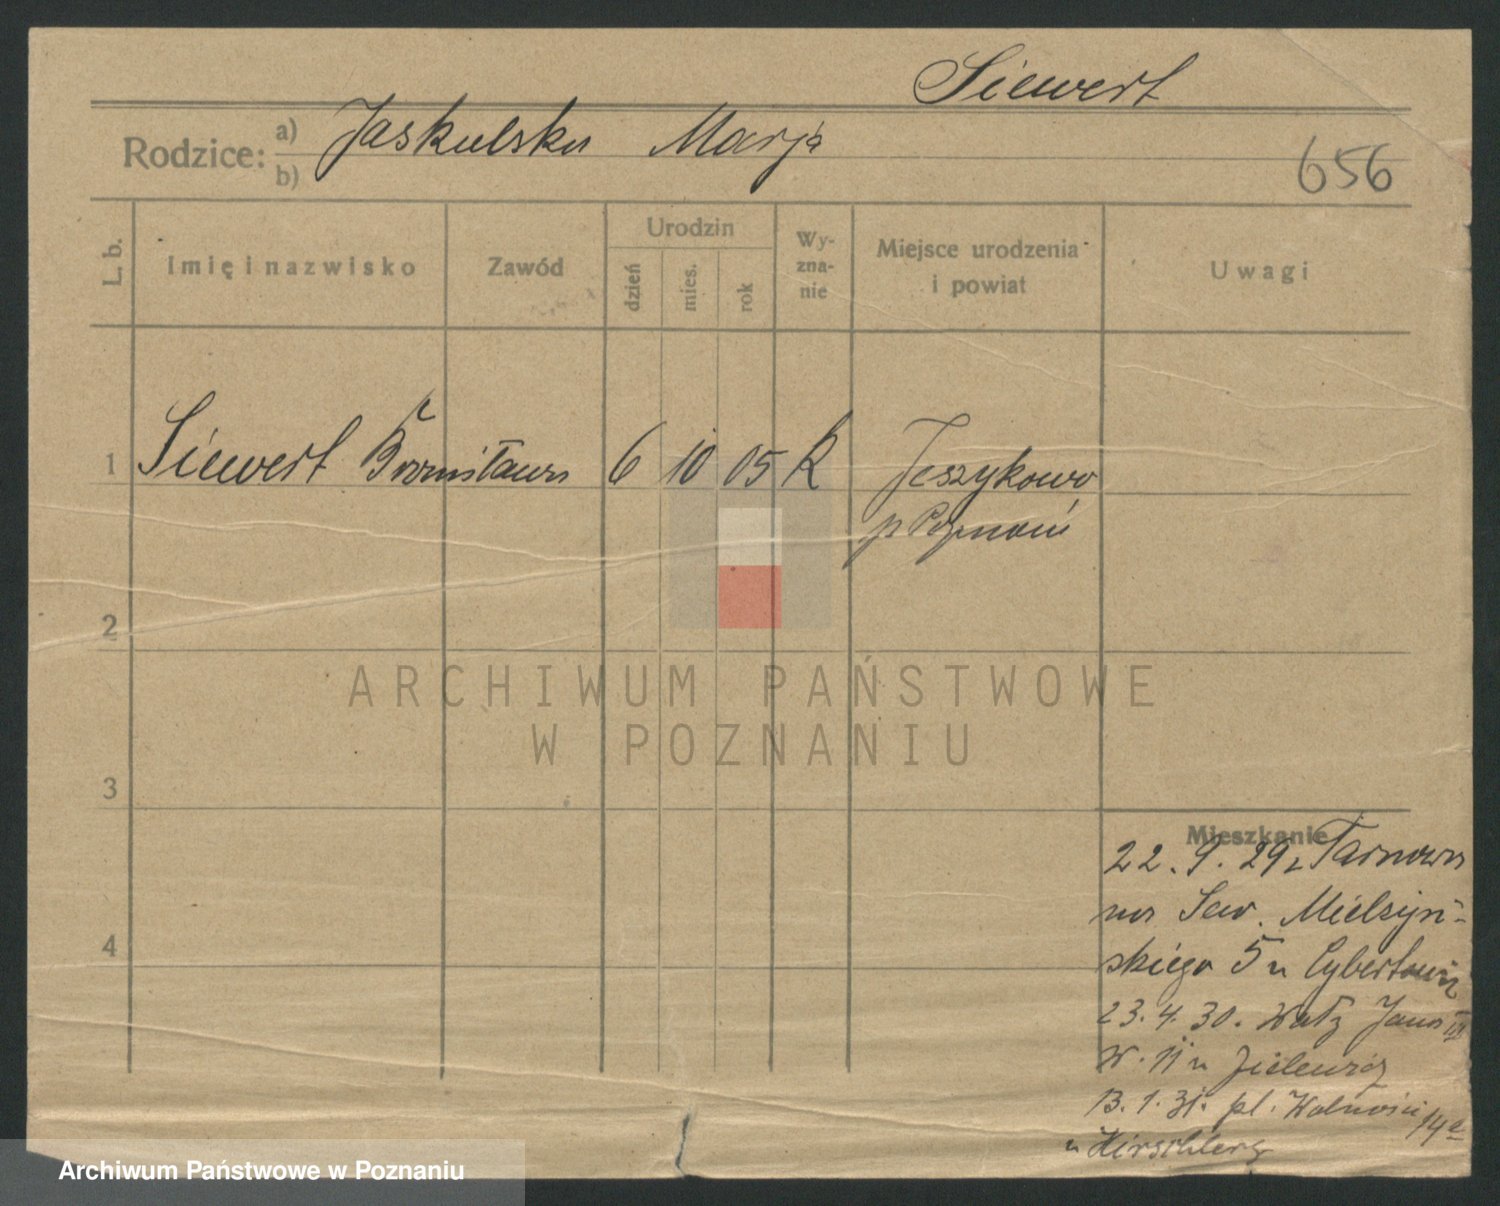 Siewert
Rodzice: a) Jaskulska Marja
b)
656
L. b.
Imię i nazwisko
Zawód
Urodzin
dzień
mies.
rok
Wy-
zna-
nie
Miejsce urodzenia
i powiat
Uwagi
1 Siewert Bronisława 6 10 05 K Jeszykowo
p Poznań
2
3
4
Mieszkanie
22. 9. 29 z Tarnowa
na Sew. Mielżyń-
skiego 5 u
23. 4. 30. Jana III
W. 11 u
13. 1. 31. pl. Wolności 14a
u Hirschberg
ARCHIWUM PAŃSTWOWE
W POZNANIU
Archiwum Państwowe w Poznaniu